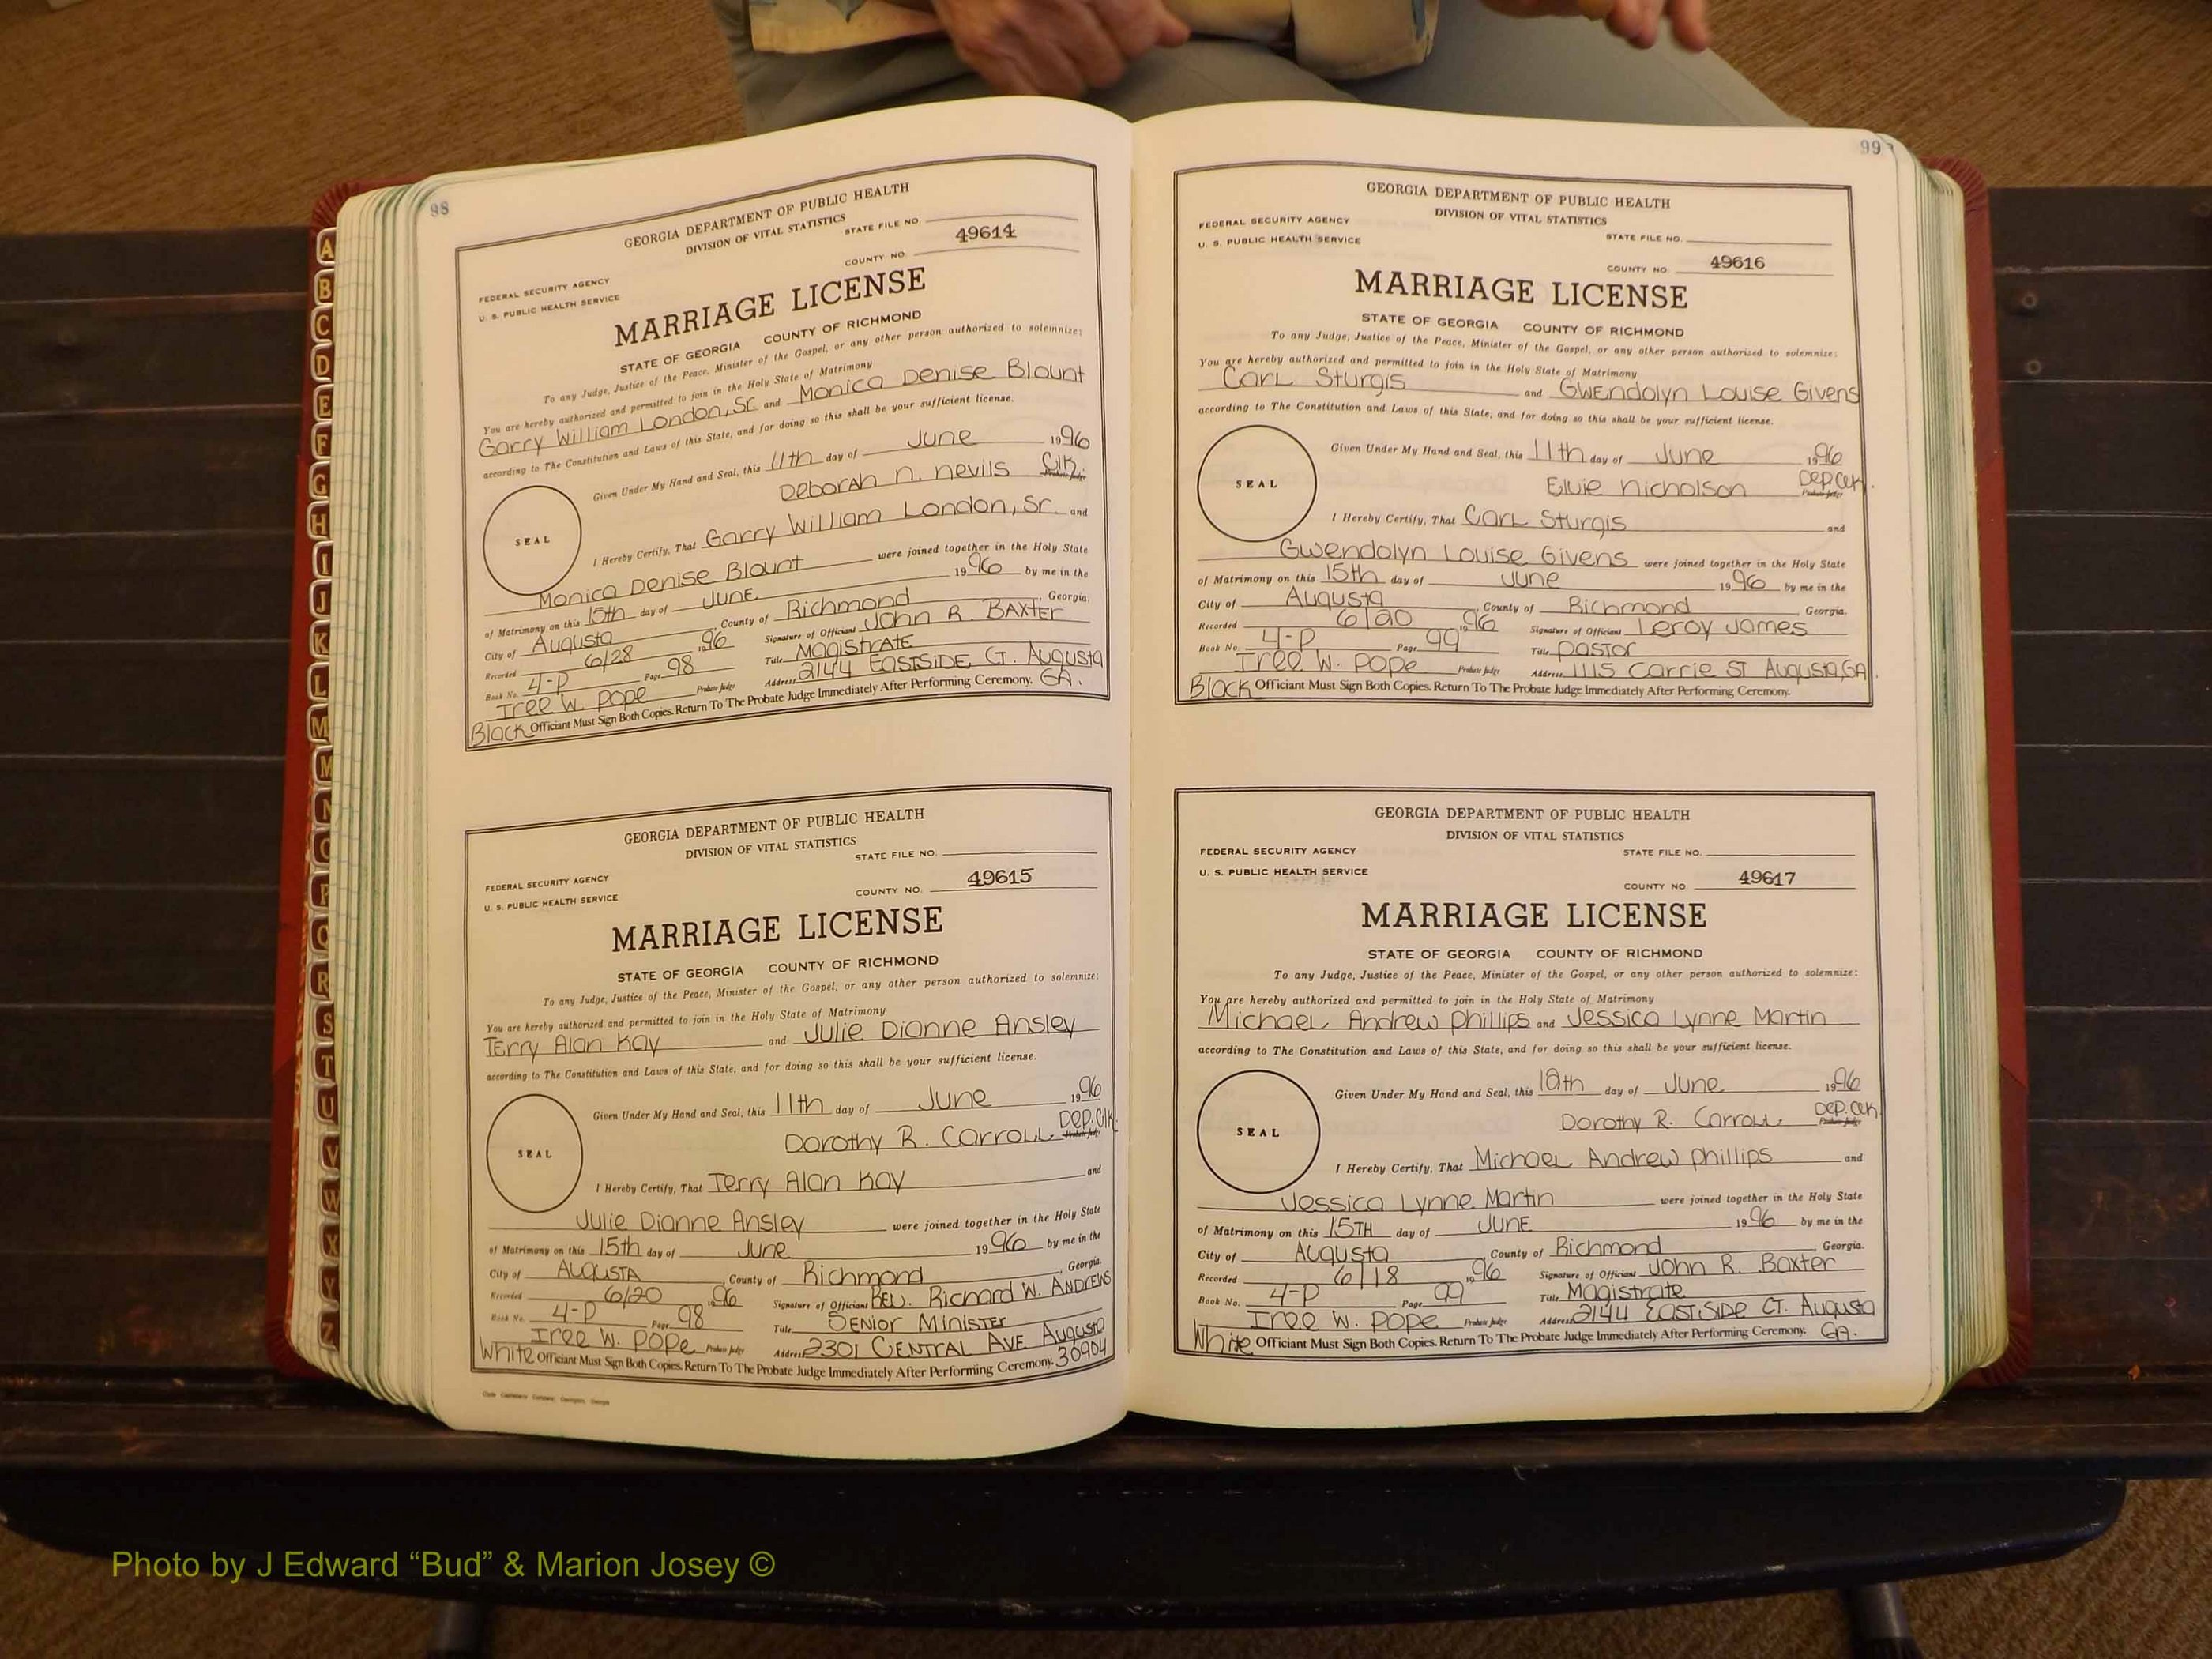 98
GEORGIA DEPARTMENT OF PUBLIC HEALTH
DIVISION OF VITAL STATISTICS
STATE FILE NO.
FEDERAL SECURITY AGENCY
U. S. PUBLIC HEALTH SERVICE
COUNTY NO. 49614
MARRIAGE LICENSE
STATE OF GEORGIA COUNTY OF RICHMOND
To any Judge, Justice of the Peace, Minister of the Gospel, or any other person authorized to solemnize:
You are hereby authorized and permitted to join in the Holy State of Matrimony
Garry William London, Sr. and Monica Denise Blount
according to The Constitution and Laws of this State, and for doing so this shall be your sufficient license.
Given Under My Hand and Seal, this 11th day of June 1996
Deborah N. Nevils Clk. Probate Judge
SEAL
I Hereby Certify, That Garry William London, Sr. and
Monica Denise Blount were joined together in the Holy State
of Matrimony on this 15th day of JUNE 1996 by me in the
City of Augusta, County of Richmond, Georgia.
Recorded 6/28 1996 Signature of Officiant John R. BAXTER
Book No. 4-P Page 98 Title MAGISTRATE
Iree W. Pope Probate Judge Address 2144 EASTSIDE CT. Augusta
Black Officiant Must Sign Both Copies. Return To The Probate Judge Immediately After Performing Ceremony. GA.
GEORGIA DEPARTMENT OF PUBLIC HEALTH
DIVISION OF VITAL STATISTICS
STATE FILE NO.
FEDERAL SECURITY AGENCY
U. S. PUBLIC HEALTH SERVICE
COUNTY NO. 49615
MARRIAGE LICENSE
STATE OF GEORGIA COUNTY OF RICHMOND
To any Judge, Justice of the Peace, Minister of the Gospel, or any other person authorized to solemnize:
You are hereby authorized and permitted to join in the Holy State of Matrimony
Terry Alan Kay and Julie Dianne Ansley
according to The Constitution and Laws of this State, and for doing so this shall be your sufficient license.
Given Under My Hand and Seal, this 11th day of June 1996
Dorothy R. Carroll Dep. Clk. Probate Judge
SEAL
I Hereby Certify, That Terry Alan Kay and
Julie Dianne Ansley were joined together in the Holy State
of Matrimony on this 15th day of June 1996 by me in the
City of AUGUSTA, County of Richmond, Georgia.
Recorded 6/20 1996 Signature of Officiant REV. Richard W. ANDREWS
Book No. 4-P Page 98 Title SENIOR MINISTER
Iree W. Pope Probate Judge Address 2301 CENTRAL AVE Augusta
White Officiant Must Sign Both Copies. Return To The Probate Judge Immediately After Performing Ceremony. 30904
99
GEORGIA DEPARTMENT OF PUBLIC HEALTH
DIVISION OF VITAL STATISTICS
FEDERAL SECURITY AGENCY
U. S. PUBLIC HEALTH SERVICE
STATE FILE NO.
COUNTY NO. 49616
MARRIAGE LICENSE
STATE OF GEORGIA COUNTY OF RICHMOND
To any Judge, Justice of the Peace, Minister of the Gospel, or any other person authorized to solemnize:
You are hereby authorized and permitted to join in the Holy State of Matrimony
Carl Sturgis and Gwendolyn Louise Givens
according to The Constitution and Laws of this State, and for doing so this shall be your sufficient license.
Given Under My Hand and Seal, this 11th day of June 1996
Elvie Nicholson Dep. Clk. Probate Judge
SEAL
I Hereby Certify, That Carl Sturgis and
Gwendolyn Louise Givens were joined together in the Holy State
of Matrimony on this 15th day of June 1996 by me in the
City of Augusta, County of Richmond, Georgia.
Recorded 6/20 1996 Signature of Officiant Leroy James
Book No. 4-P Page 99 Title Pastor
Iree W. Pope Probate Judge Address 1115 Carrie ST Augusta, GA.
Black Officiant Must Sign Both Copies. Return To The Probate Judge Immediately After Performing Ceremony.
GEORGIA DEPARTMENT OF PUBLIC HEALTH
DIVISION OF VITAL STATISTICS
FEDERAL SECURITY AGENCY
STATE FILE NO.
U. S. PUBLIC HEALTH SERVICE
COUNTY NO. 49617
MARRIAGE LICENSE
STATE OF GEORGIA COUNTY OF RICHMOND
To any Judge, Justice of the Peace, Minister of the Gospel, or any other person authorized to solemnize:
You are hereby authorized and permitted to join in the Holy State of Matrimony
Michael Andrew Phillips and Jessica Lynne Martin
according to The Constitution and Laws of this State, and for doing so this shall be your sufficient license.
Given Under My Hand and Seal, this day of June 1996
Dorothy R. Carroll Dep. Clk. Probate Judge
SEAL
I Hereby Certify, That Michael Andrew Phillips and
Jessica Lynne Martin were joined together in the Holy State
of Matrimony on this 15TH day of JUNE 1996 by me in the
City of Augusta, County of Richmond, Georgia.
Recorded 6/18 1996 Signature of Officiant John R. Baxter
Book No. 4-P Page 99 Title Magistrate
Iree W. Pope Probate Judge Address 2144 EASTSIDE CT. Augusta
White Officiant Must Sign Both Copies. Return To The Probate Judge Immediately After Performing Ceremony. GA.
A
B
C
D
E
F
G
H
I
J
K
L
M
M
N
O
P
Q
R
S
T
U
V
W
X
Y
Z
Photo by J Edward “Bud” & Marion Josey ©